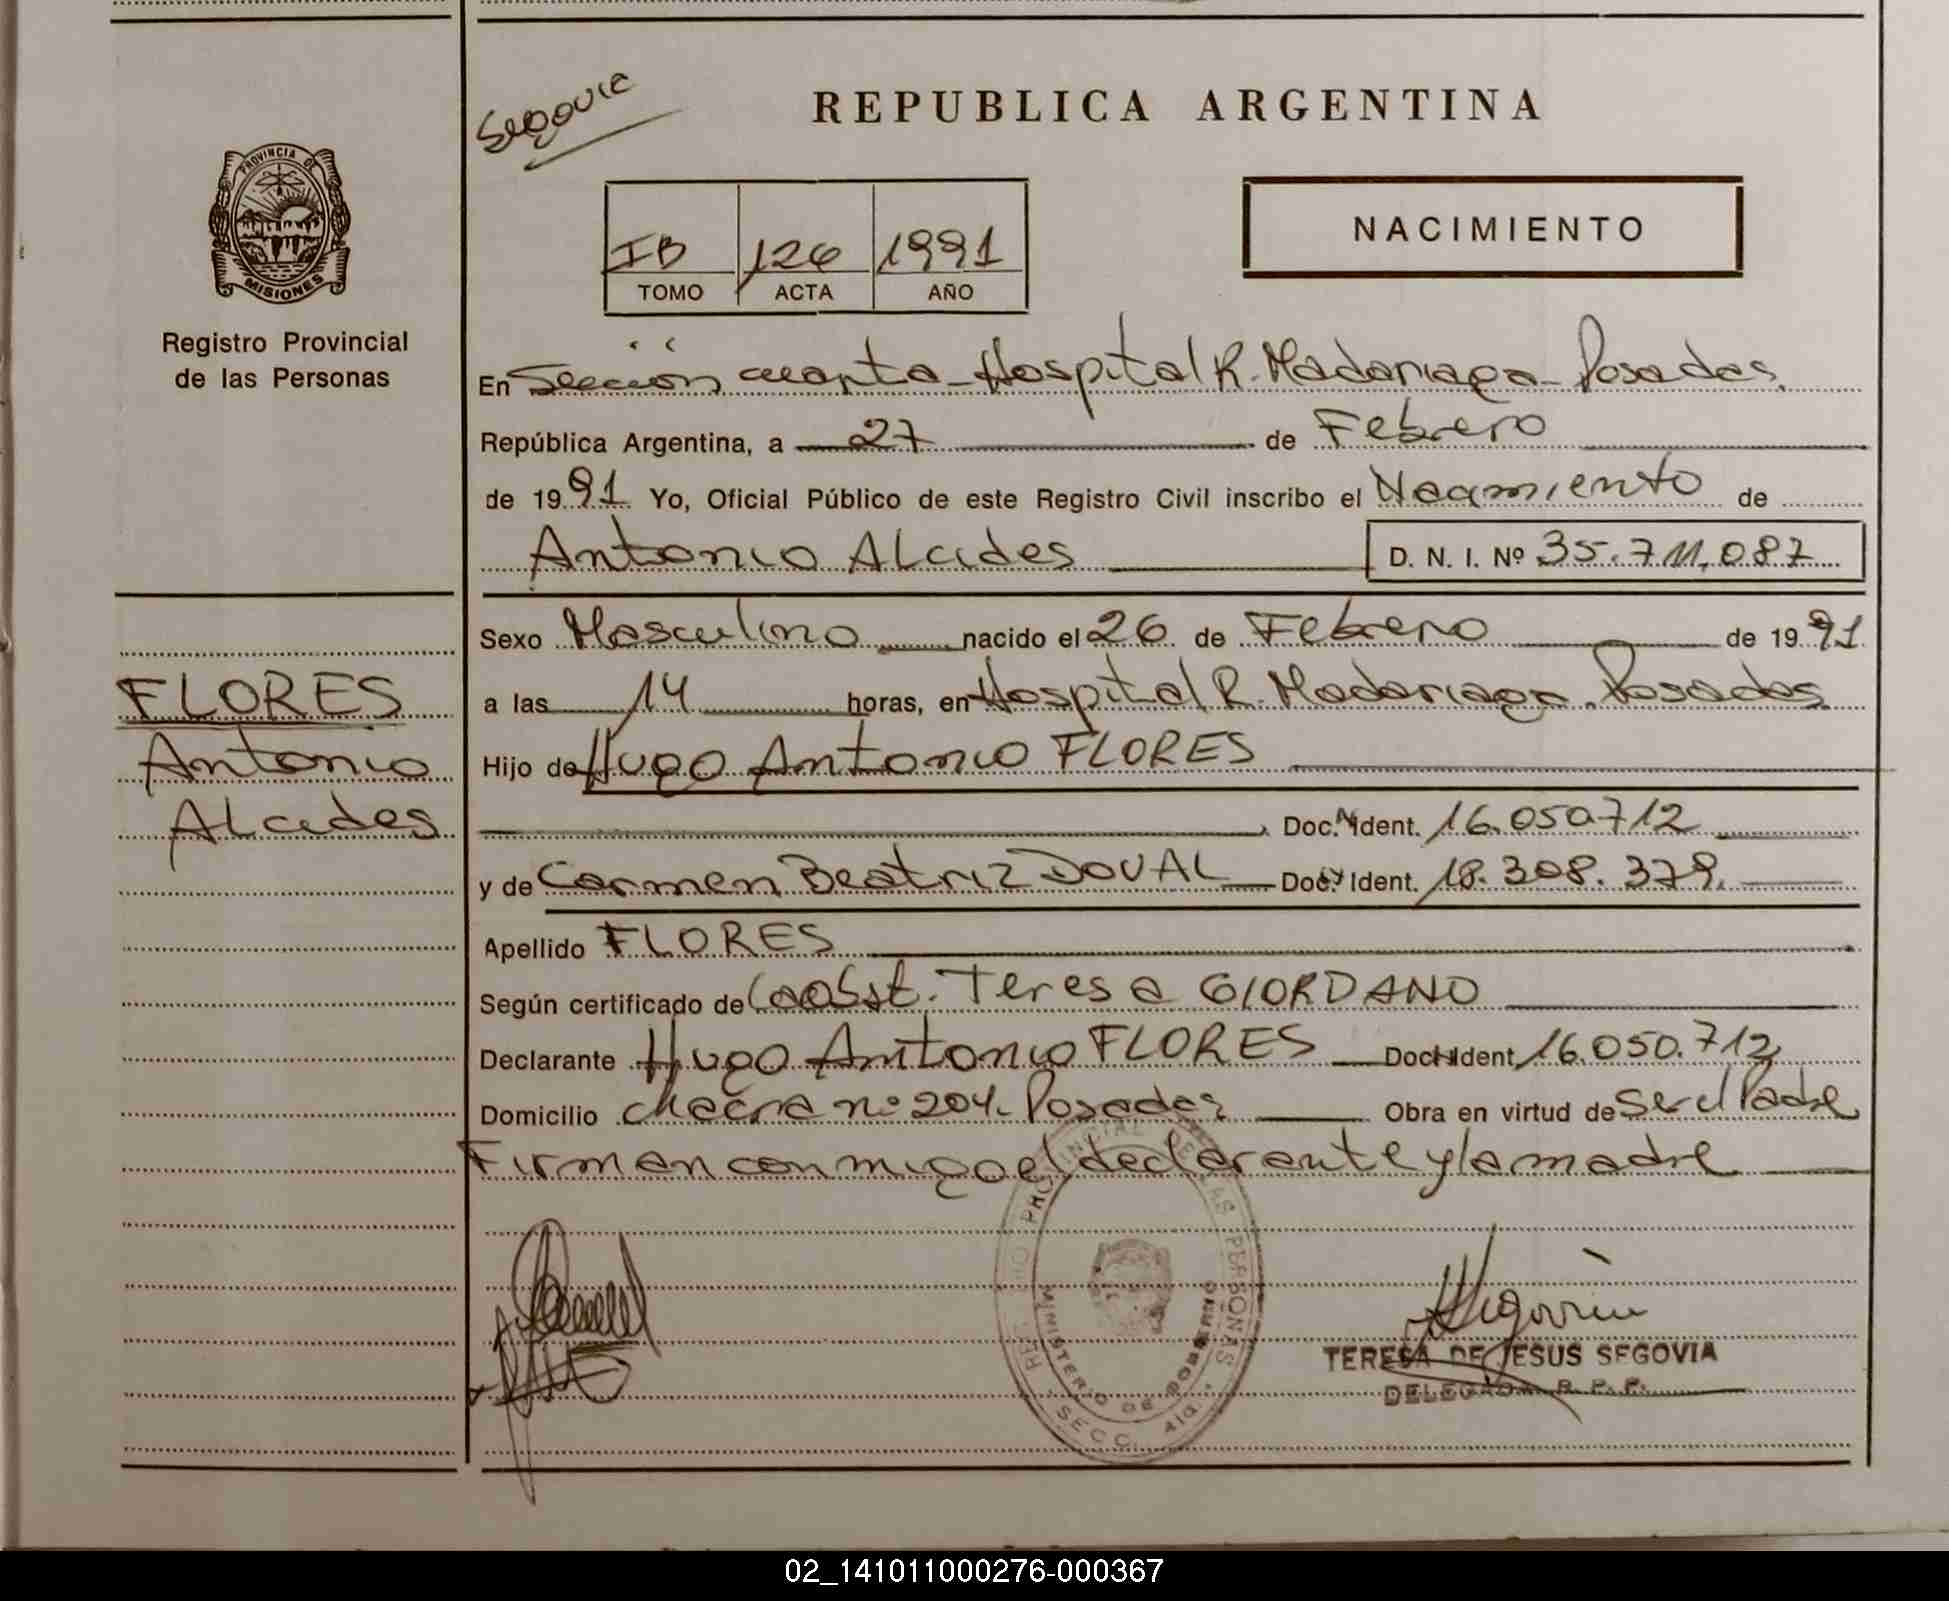 Segovia
REPUBLICA ARGENTINA
PROVINCIA DE
MISIONES
Registro Provincial
de las Personas
IB 126 1991
TOMO ACTA AÑO
NACIMIENTO
En Sección cuarta - Hospital R. Madariaga - Posadas.
República Argentina, a 27 de Febrero
de 1991 Yo, Oficial Público de este Registro Civil inscribo el Nacimiento de
Antonio Alcides D. N. I. Nº 35.711.087
Sexo Masculino nacido el 26 de Febrero de 1991
a las 14 horas, en Hospital R. Madariaga. Posadas
Hijo de Hugo Antonio FLORES
Doc. Ident. 16.050.712
y de Carmen Beatriz DOVAL Doc. Ident. 18.308.379.
Apellido FLORES
Según certificado de la obst. Teresa GIORDANO
Declarante Hugo Antonio FLORES Doc. Ident. 16.050.712
Domicilio chacra nº 204. Posadas Obra en virtud de ser el Padre
Firman conmigo el declarante y la madre
FLORES
Antonio
Alcides
REGISTRO PROVINCIAL DE LAS PERSONAS
MINISTERIO DE GOBIERNO
SECC. 4ta.
Segovia
TERESA DE JESUS SEGOVIA
DELEGADA R. P. P.
02_141011000276-000367